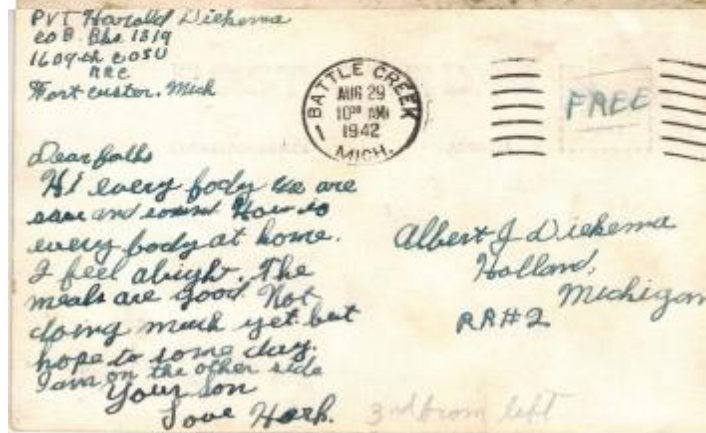 PVT Harold Diekema
CO B. Bks 1319
1609th COSU
RRC
Fort Custer, Mich
BATTLE CREEK
AUG 29
10 AM
1942
MICH.
FREE
Dear folks
Hi every body we are
save and sound How is
every body at home.
I feel alright. The
meals are good Not
doing much yet but
hope to some day.
I am on the other side
Your son
Love Har
Albert J Diekema
Holland,
Michigan
RR#2
3rd from left